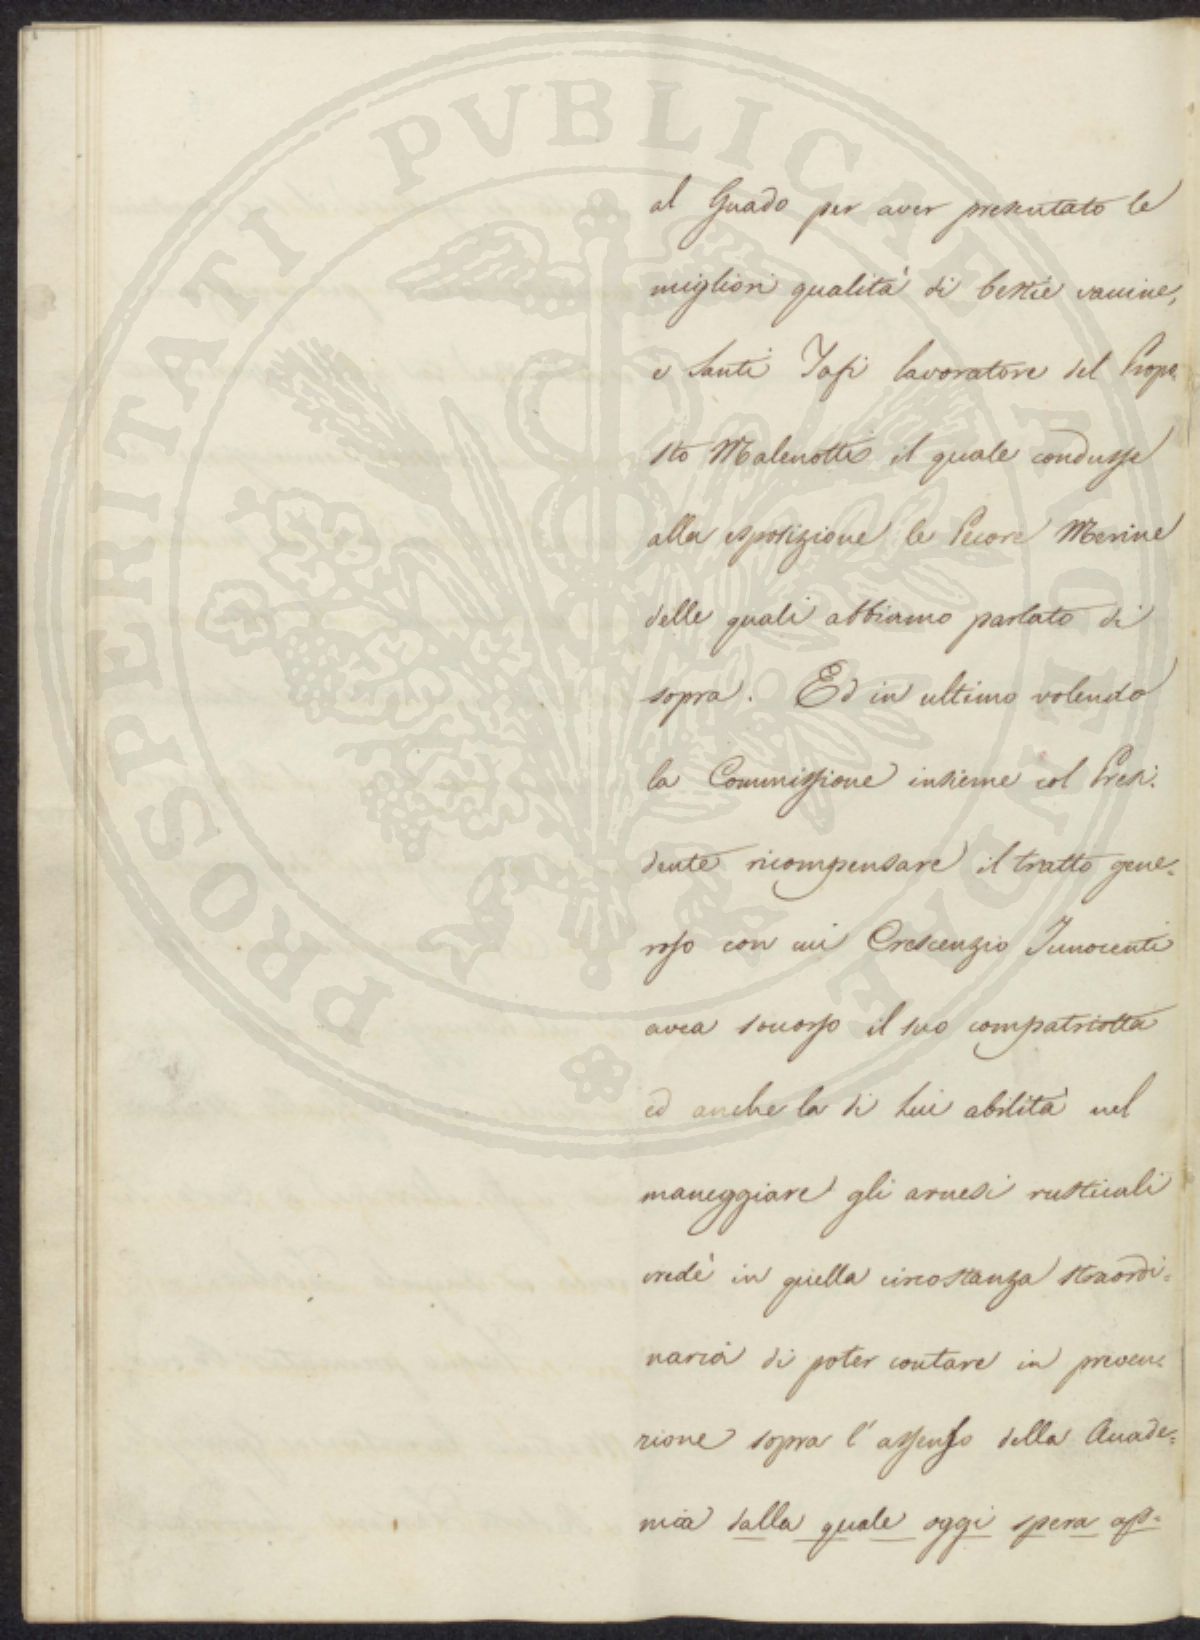 PROSPERITATI PVBLICAE AVGENDAE
al Guado per aver presentato le
migliori qualità di bestie vaccine,
e Santi Tafi lavoratore del Propo
sto Malenotti il quale condusse
alla esposizione le Pecore Merine
delle quali abbiamo parlato di
sopra. Ed in ultimo volendo
la Commissione insieme col Presi.
dente ricompensare il tratto gene=
roso con cui Crescenzio Innocenti
avea soccorso il suo compatriotta
ed anche la di Lui abilità nel
maneggiare gli arnesi rusticali
credè in quella circostanza straordi=
naria di poter contare in preven=
zione sopra l'assenso della Accade=
mia dalla quale oggi spera ap=